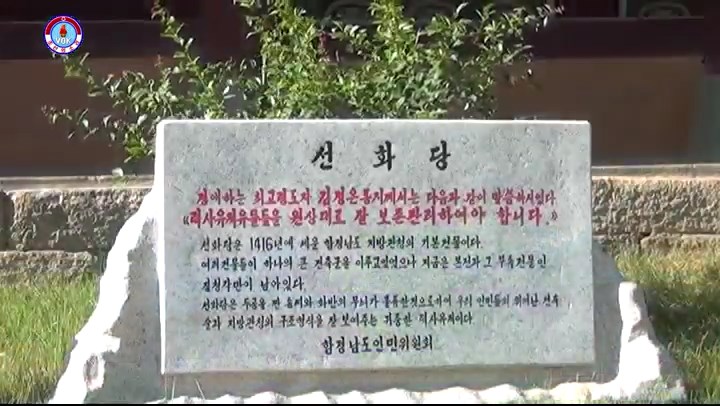 VOK
선화당
경애하는 최고령도자 김정은동지께서는 다음과 같이 말씀하시였다.
《력사유적유물들을 원상대로 잘 보존관리하여야 합니다.》
선화당은 1416년에 세운 함경남도 지방관청의 기본건물이다.
여러건물들이 하나의 큰 건축군을 이루고있었으나 지금은 본전과 그 부속건물인
징청각만이 남아있다.
선화당은 두공을 짠 솜씨와 화반의 무늬가 훌륭한것으로하여 우리 인민들의 뛰여난 건축
술과 지방관청의 구조형식을 잘 보여주는 귀중한 력사유적이다.
함경남도인민위원회